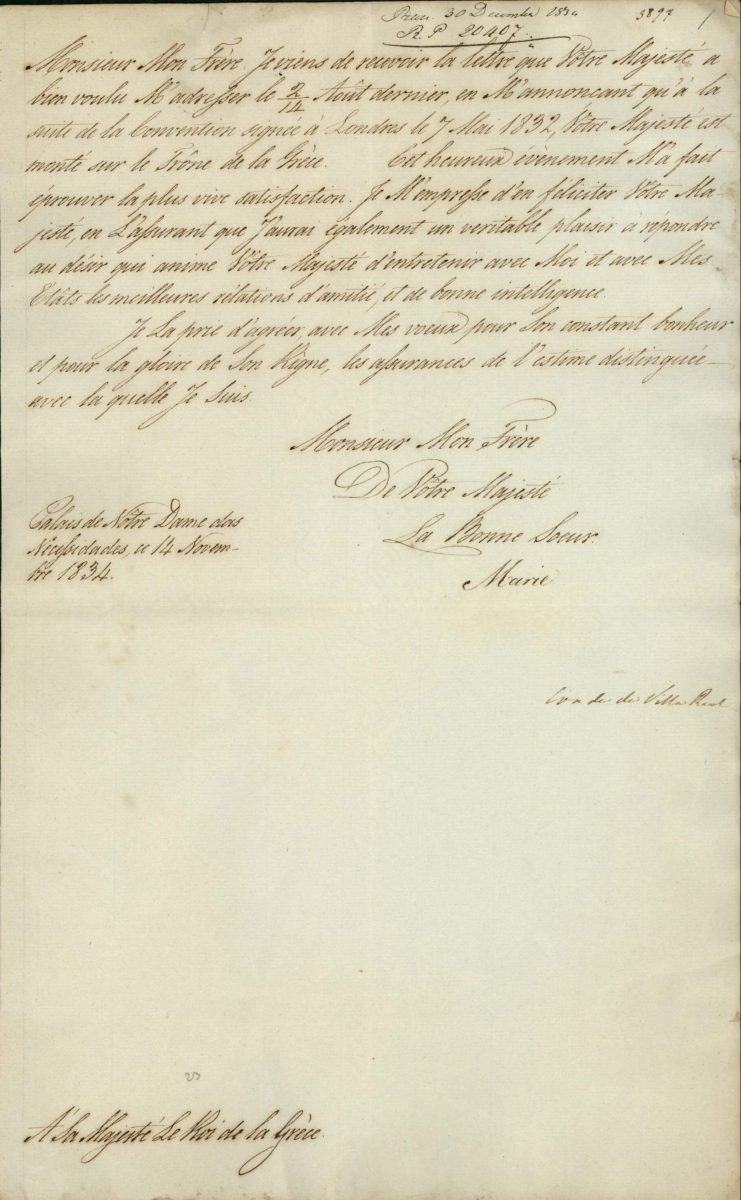 30 Decembre 1834
3893
R.P. 20407.
Monsieur Mon Frère. Je viens de recevoir la lettre que Vôtre Majesté a
bien voulu M'adresser le 2/14 Août dernier, en M'annonçant qu'à la
suite de la Convention signée à Londres le 7 Mai 1832, Vôtre Majesté est
monté sur le Trône de la Grèce. Cet heureux évènement M'a fait
éprouver la plus vive satisfaction. Je M'empresse d'en féliciter Vôtre Ma-
jesté, en L'assurant que J'aurai également un veritable plaisir à répondre
au désir qui anime Vôtre Majesté d'entretenir avec Moi et avec Mes
Etâts les meilleures rélations d'amitié, et de bonne intelligence.
Je La prie d'agréer, avec Mes voeux pour Son constant bonheur
et pour la gloire de Son Règne, les assurances de l'estime distinguée
avec la quelle Je Suis.
Monsieur Mon Frère
De Vôtre Majesté
La Bonne Soeur.
Marie
Palais de Nôtre Dame das
Necessidades, ce 14 Novem-
bre 1834.
Conde de Villa Real
A Sa Majesté Le Roi de la Grèce.